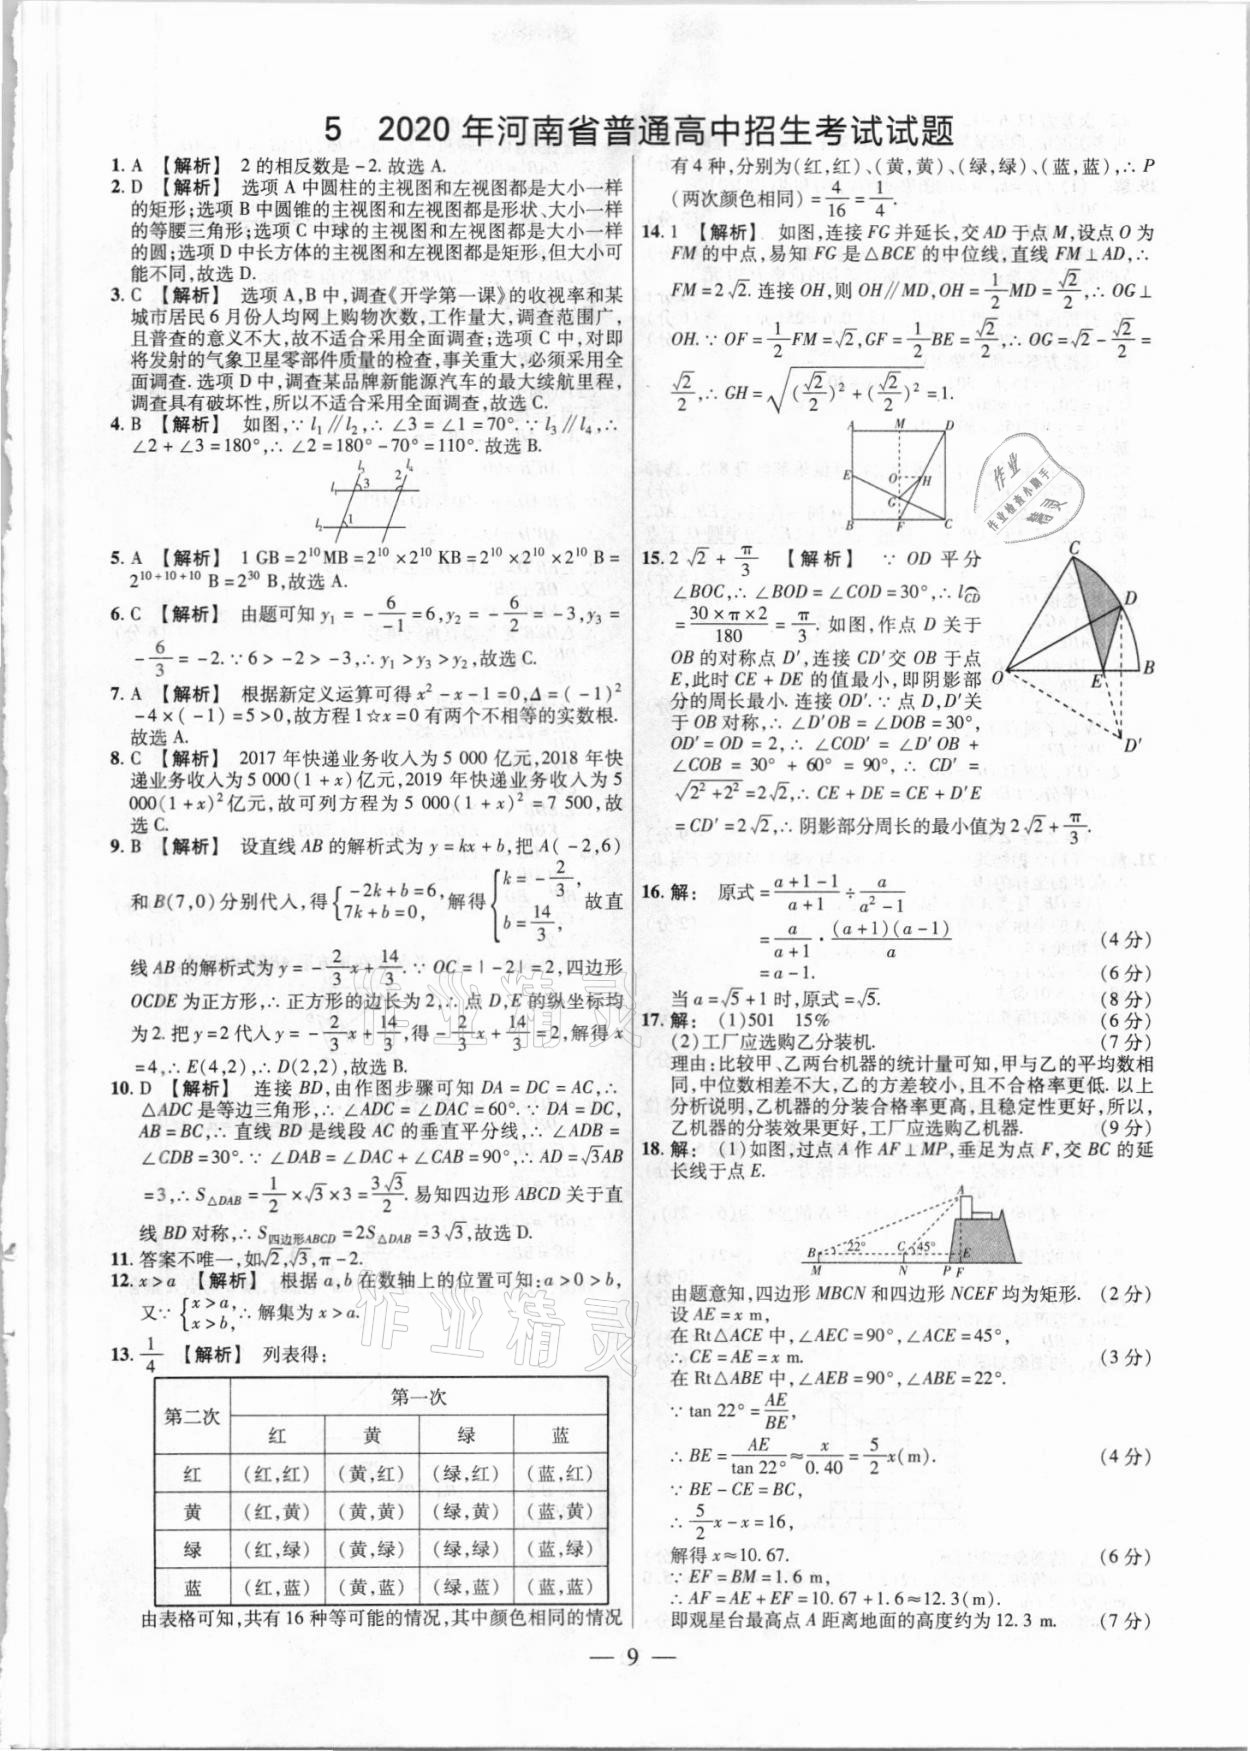 5 2020 年河南省普通高中招生考试试题
1. A 【解析】 2 的相反数是-2. 故选 A.
2. D 【解析】 选项 A 中圆柱的主视图和左视图都是大小一样
的矩形;选项 B 中圆锥的主视图和左视图都是形状、大小一样
的等腰三角形;选项 C 中球的主视图和左视图都是大小一样
的圆;选项 D 中长方体的主视图和左视图都是矩形,但大小可
能不同,故选 D.
3. C 【解析】 选项 A,B 中,调查《开学第一课》的收视率和某
城市居民 6 月份人均网上购物次数,工作量大,调查范围广,
且普查的意义不大,故不适合采用全面调查;选项 C 中,对即
将发射的气象卫星零部件质量的检查,事关重大,必须采用全
面调查. 选项 D 中,调查某品牌新能源汽车的最大续航里程,
调查具有破坏性,所以不适合采用全面调查,故选 C.
4. B 【解析】 如图,∵ l₁∥l₂,∴ ∠3 = ∠1 = 70°. ∵ l₃∥l₄,∴
∠2 + ∠3 = 180°,∴ ∠2 = 180° - 70° = 110°. 故选 B.
l₃ l₄
l₁ 3 2
l₂ 1
5. A 【解析】 1 GB = 2¹⁰ MB = 2¹⁰ × 2¹⁰ KB = 2¹⁰ × 2¹⁰ × 2¹⁰ B =
2¹⁰⁺¹⁰⁺¹⁰ B = 2³⁰ B,故选 A.
6. C 【解析】 由题可知 y₁ = -6/-1 = 6,y₂ = -6/2 = -3,y₃ =
-6/3 = -2. ∵ 6 > -2 > -3,∴ y₁ > y₃ > y₂,故选 C.
7. A 【解析】 根据新定义运算可得 x² - x - 1 = 0,Δ = (-1)²
-4×(-1) = 5 > 0,故方程 1☆x = 0 有两个不相等的实数根.
故选 A.
8. C 【解析】 2017 年快递业务收入为 5 000 亿元,2018 年快
递业务收入为 5 000(1 + x)亿元,2019 年快递业务收入为 5
000(1 + x)²亿元,故可列方程为 5 000(1 + x)² = 7 500,故
选 C.
9. B 【解析】 设直线 AB 的解析式为 y = kx + b,把 A(-2,6)
和 B(7,0)分别代入,得{-2k + b = 6, 7k + b = 0, 解得{k = -2/3, b = 14/3, 故直
线 AB 的解析式为 y = -2/3x + 14/3. ∵ OC = |-2| = 2,四边形
OCDE 为正方形,∴ 正方形的边长为 2,∴ 点 D,E 的纵坐标均
为 2. 把 y = 2 代入 y = -2/3x + 14/3,得 -2/3x + 14/3 = 2,解得 x
= 4,∴ E(4,2),∴ D(2,2),故选 B.
10. D 【解析】 连接 BD,由作图步骤可知 DA = DC = AC,∴
△ADC 是等边三角形,∴ ∠ADC = ∠DAC = 60°. ∵ DA = DC,
AB = BC,∴ 直线 BD 是线段 AC 的垂直平分线,∴ ∠ADB =
∠CDB = 30°. ∵ ∠DAB = ∠DAC + ∠CAB = 90°,∴ AD = √3AB
= 3,∴ S△DAB = 1/2 × √3 × 3 = 3√3/2. 易知四边形 ABCD 关于直
线 BD 对称,∴ S四边形ABCD = 2S△DAB = 3√3,故选 D.
11. 答案不唯一,如√2,√3,π - 2.
12. x > a 【解析】 根据 a,b 在数轴上的位置可知:a > 0 > b,
又∵ {x > a, x > b, ∴ 解集为 x > a.
13. 1/4 【解析】 列表得:
第二次 第一次
红 黄 绿 蓝
红 (红,红) (黄,红) (绿,红) (蓝,红)
黄 (红,黄) (黄,黄) (绿,黄) (蓝,黄)
绿 (红,绿) (黄,绿) (绿,绿) (蓝,绿)
蓝 (红,蓝) (黄,蓝) (绿,蓝) (蓝,蓝)
由表格可知,共有 16 种等可能的情况,其中颜色相同的情况
有 4 种,分别为(红,红)、(黄,黄)、(绿,绿)、(蓝,蓝),∴ P
(两次颜色相同) = 4/16 = 1/4.
14. 1 【解析】 如图,连接 FG 并延长,交 AD 于点 M,设点 O 为
FM 的中点,易知 FG 是△BCE 的中位线,直线 FM⊥AD,∴
FM = 2√2. 连接 OH,则 OH∥MD,OH = 1/2MD = √2/2,∴ OG⊥
OH. ∵ OF = 1/2FM = √2,GF = 1/2BE = √2/2,∴ OG = √2 - √2/2 =
√2/2,∴ GH = √((√2/2)² + (√2/2)²) = 1.
A M D
E O H
G
B F C
作业
作业检查小助手
精灵
15. 2√2 + π/3 【解析】 ∵ OD 平分
∠BOC,∴ ∠BOD = ∠COD = 30°,∴ l⌒CD
= 30 × π × 2/180 = π/3. 如图,作点 D 关于
OB 的对称点 D′,连接 CD′交 OB 于点
E,此时 CE + DE 的值最小,即阴影部
分的周长最小. 连接 OD′. ∵ 点 D,D′关
于 OB 对称,∴ ∠D′OB = ∠DOB = 30°,
OD′ = OD = 2,∴ ∠COD′ = ∠D′OB +
∠COB = 30° + 60° = 90°,∴ CD′ =
√(2² + 2²) = 2√2,∴ CE + DE = CE + D′E
= CD′ = 2√2,∴ 阴影部分周长的最小值为 2√2 + π/3.
C
D
O E B
D′
16. 解: 原式 = a + 1 - 1/a + 1 ÷ a/a² - 1
= a/a + 1 · (a + 1)(a - 1)/a (4 分)
= a - 1. (6 分)
当 a = √5 + 1 时,原式 = √5. (8 分)
17. 解: (1)501 15% (6 分)
(2)工厂应选购乙分装机. (7 分)
理由:比较甲、乙两台机器的统计量可知,甲与乙的平均数相
同,中位数相差不大,乙的方差较小,且不合格率更低. 以上
分析说明,乙机器的分装合格率更高,且稳定性更好,所以,
乙机器的分装效果更好,工厂应选购乙机器. (9 分)
18. 解: (1)如图,过点 A 作 AF⊥MP,垂足为点 F,交 BC 的延
长线于点 E.
A
B 22° C 45° E
M N P F
由题意知,四边形 MBCN 和四边形 NCEF 均为矩形. (2 分)
设 AE = x m,
在 Rt△ACE 中,∠AEC = 90°,∠ACE = 45°,
∴ CE = AE = x m. (3 分)
在 Rt△ABE 中,∠AEB = 90°,∠ABE = 22°.
∵ tan 22° = AE/BE,
∴ BE = AE/tan 22° ≈ x/0.40 = 5/2x(m). (4 分)
∵ BE - CE = BC,
∴ 5/2x - x = 16,
解得 x ≈ 10.67. (6 分)
∵ EF = BM = 1.6 m,
∴ AF = AE + EF = 10.67 + 1.6 ≈ 12.3(m).
即观星台最高点 A 距离地面的高度约为 12.3 m. (7 分)
作业精灵
作业精灵
— 9 —